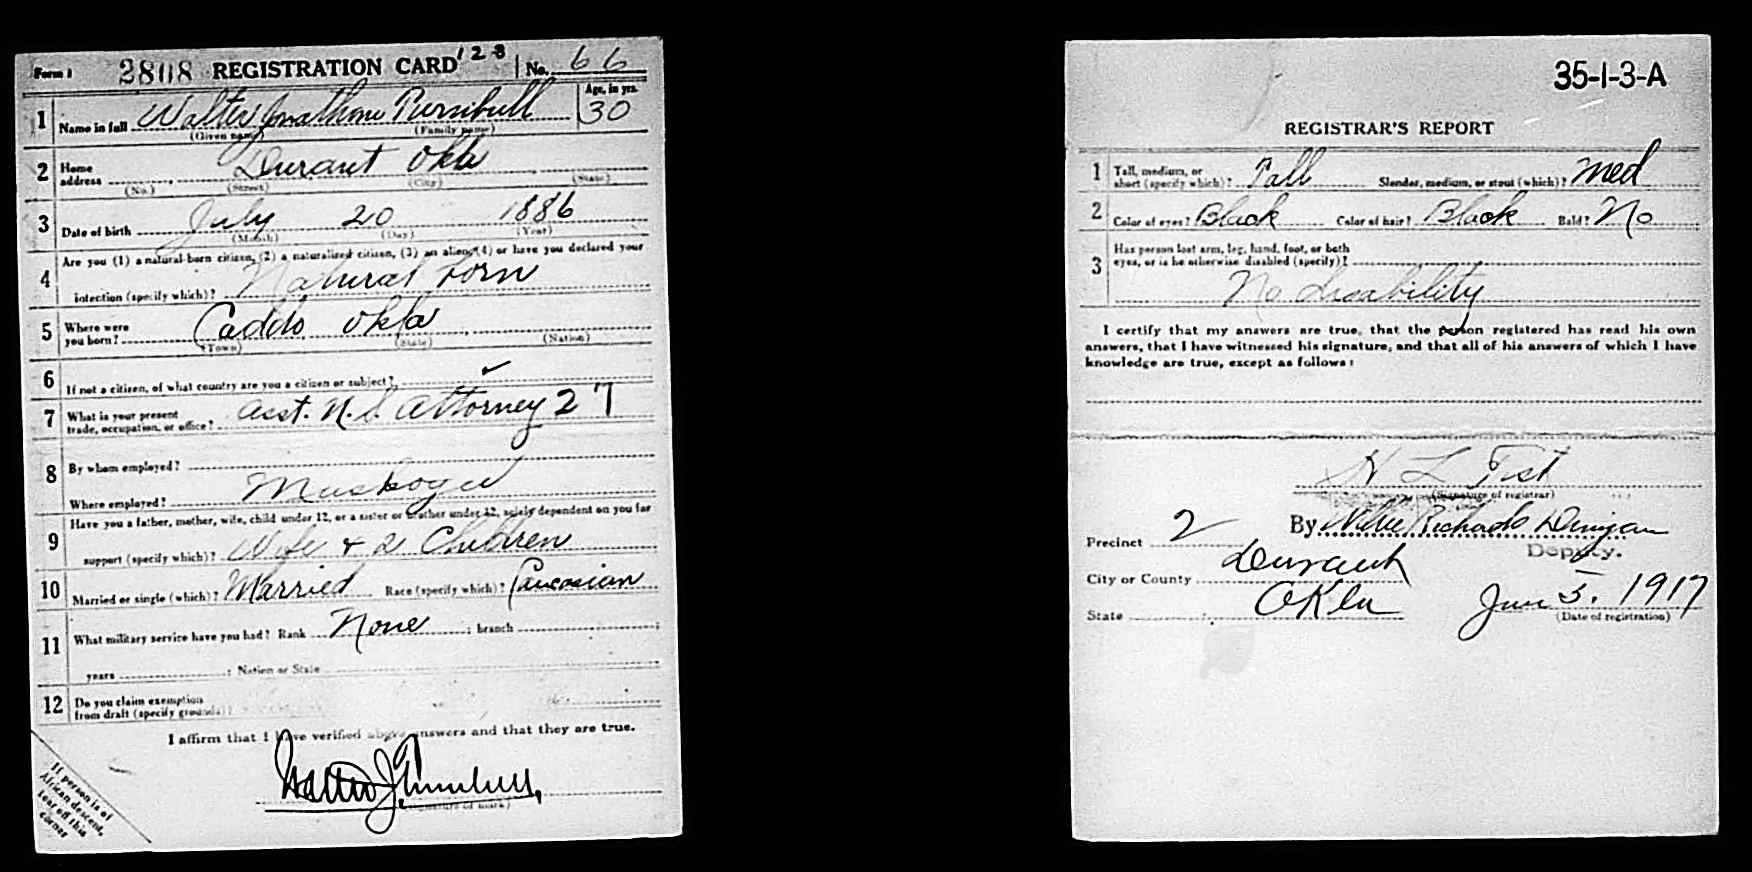 Form 1 2808 REGISTRATION CARD 128 No. 66
1 Name in full Walter Jonathan Turnbull Age, in yrs. 30
(Given name) (Family name)
2 Home address Durant Okla
(No.) (Street) (City) (State)
3 Date of birth July 20 1886
(Month) (Day) (Year)
4 Are you (1) a natural-born citizen, (2) a naturalized citizen, (3) an alien, (4) or have you declared your
intention (specify which)? Natural born
5 Where were you born? Caddo Okla
(Town) (State) (Nation)
6 If not a citizen, of what country are you a citizen or subject?
7 What is your present trade, occupation, or office? Asst. N. S. Attorney 27
8 By whom employed?
Where employed? Muskogee
9 Have you a father, mother, wife, child under 12, or a sister or brother under 12, solely dependent on you for
support (specify which)? Wife + 2 Children
10 Married or single (which)? Married Race (specify which)? Caucasian
11 What military service have you had? Rank None ; branch ;
years ; Nation or State
12 Do you claim exemption
from draft (specify grounds)?
I affirm that I have verified above answers and that they are true.
Walter J. Turnbull
(Signature or mark)
If person is of
African descent,
tear off this
corner
35-1-3-A
REGISTRAR'S REPORT
1 Tall, medium, or short (specify which)? Tall Slender, medium, or stout (which)? Med
2 Color of eyes? Black Color of hair? Black Bald? No
3 Has person lost arm, leg, hand, foot, or both
eyes, or is he otherwise disabled (specify)?
No disability
I certify that my answers are true, that the person registered has read his own
answers, that I have witnessed his signature, and that all of his answers of which I have
knowledge are true, except as follows:
H L
(Signature of registrar)
Precinct 2 By Richards
Deputy.
City or County Durant
State Okla Jun 5. 1917
(Date of registration)